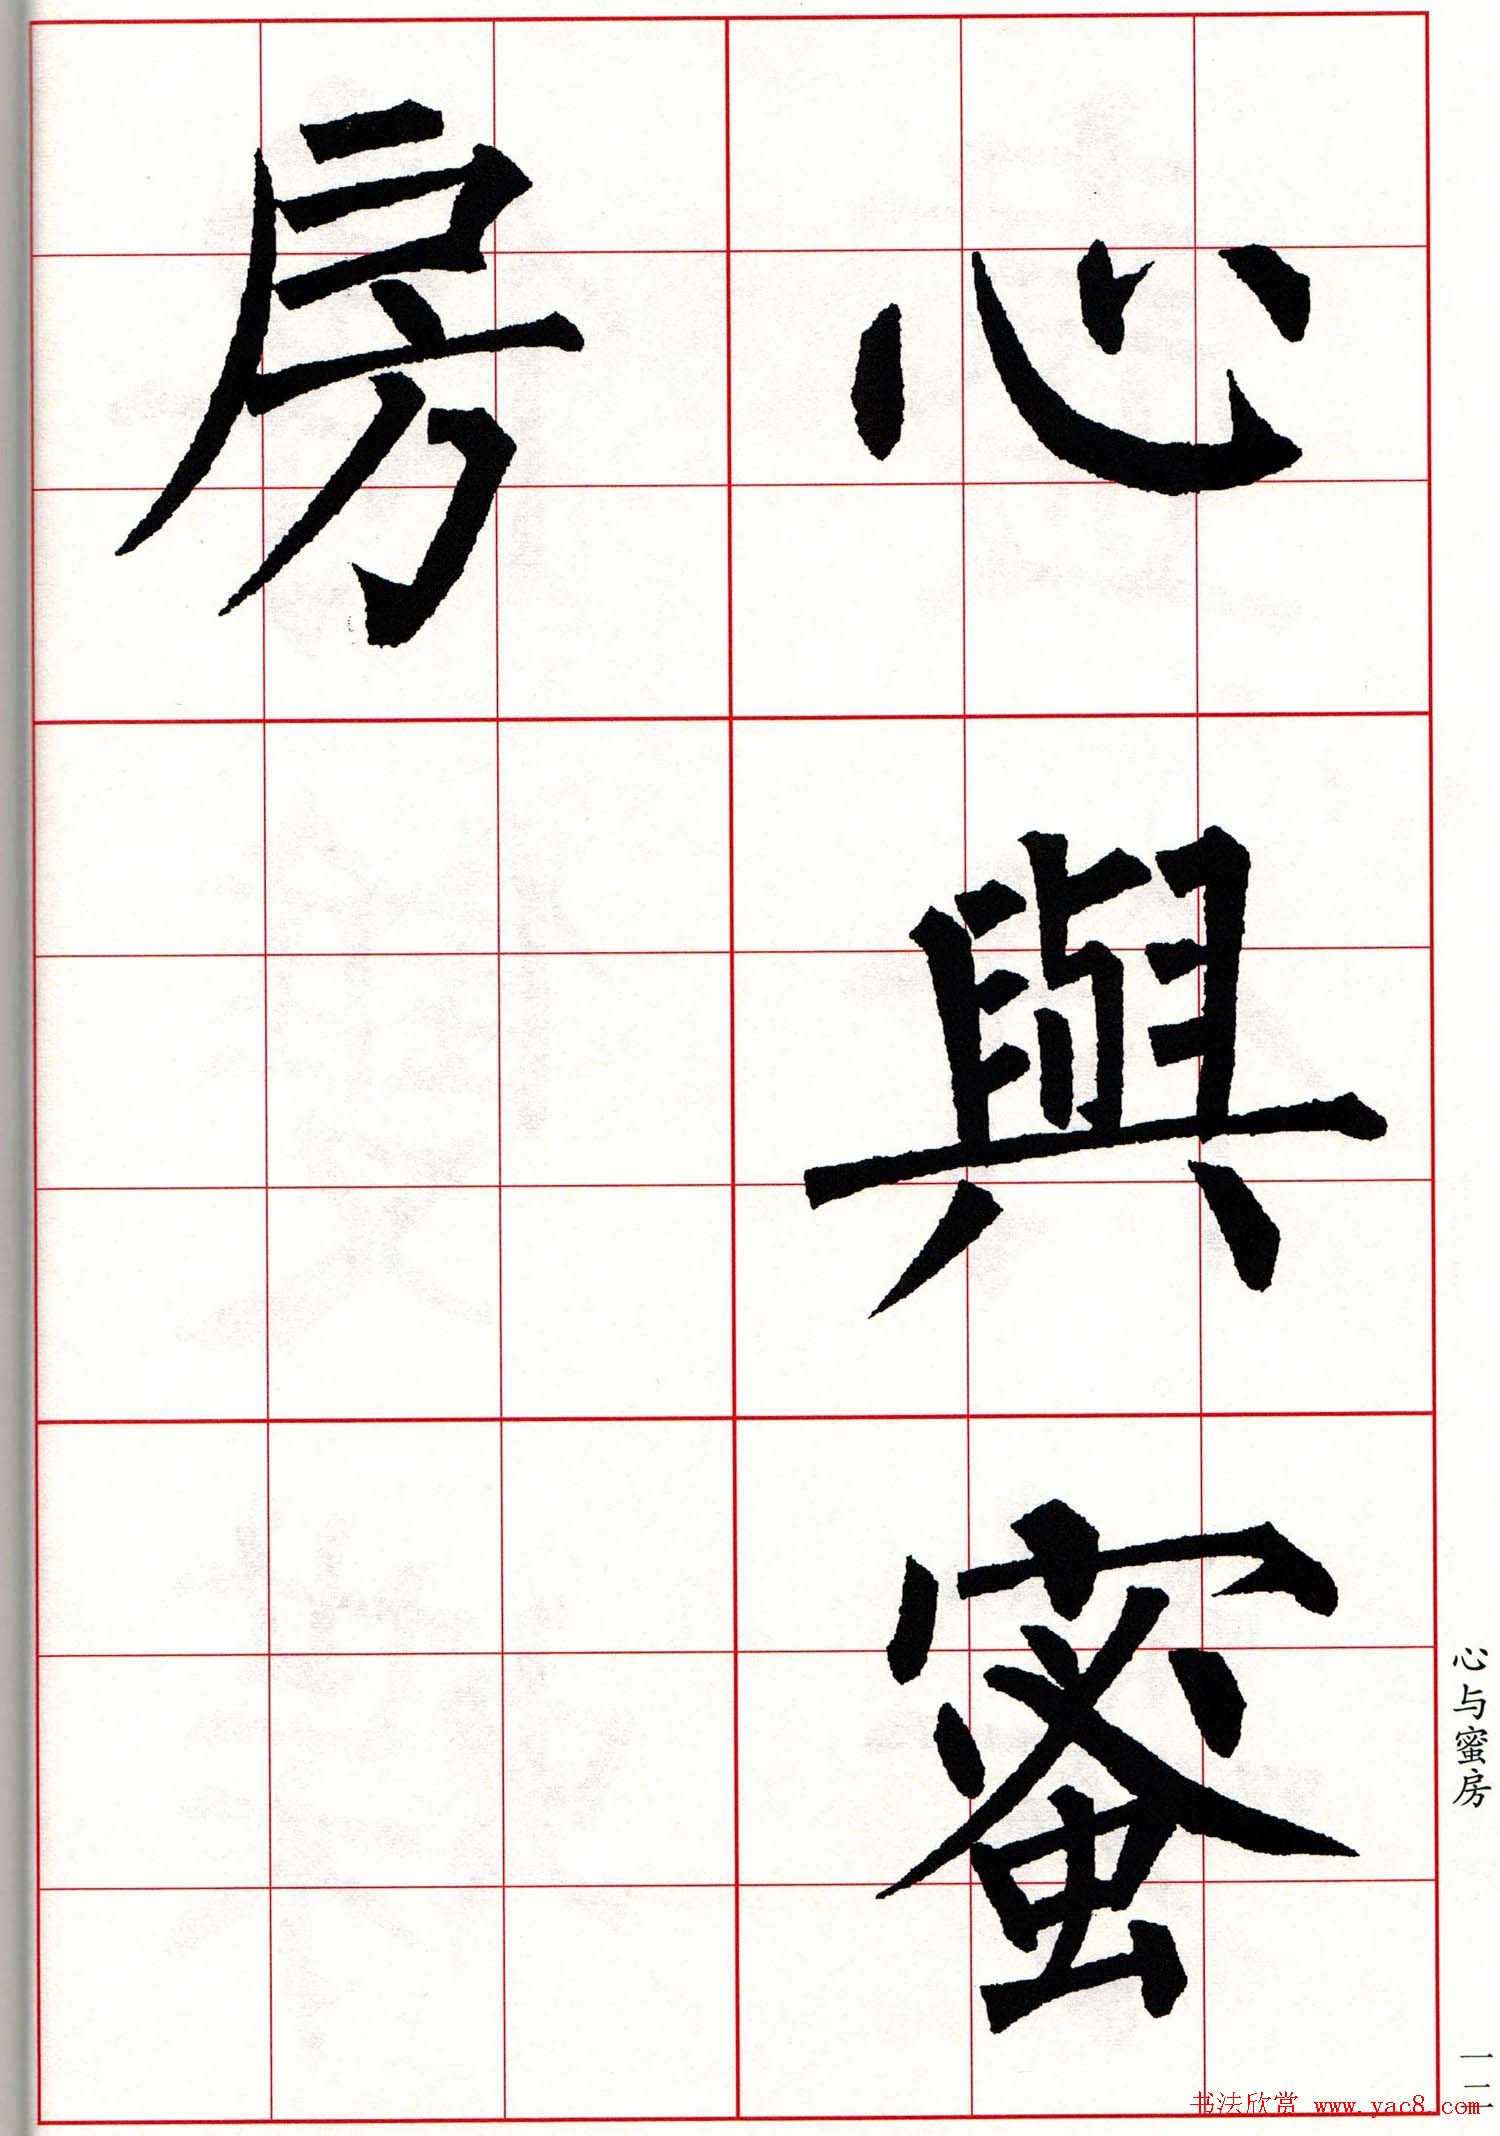 心與蜜
房
心与蜜房
一二
书法欣赏 www.yac8.com